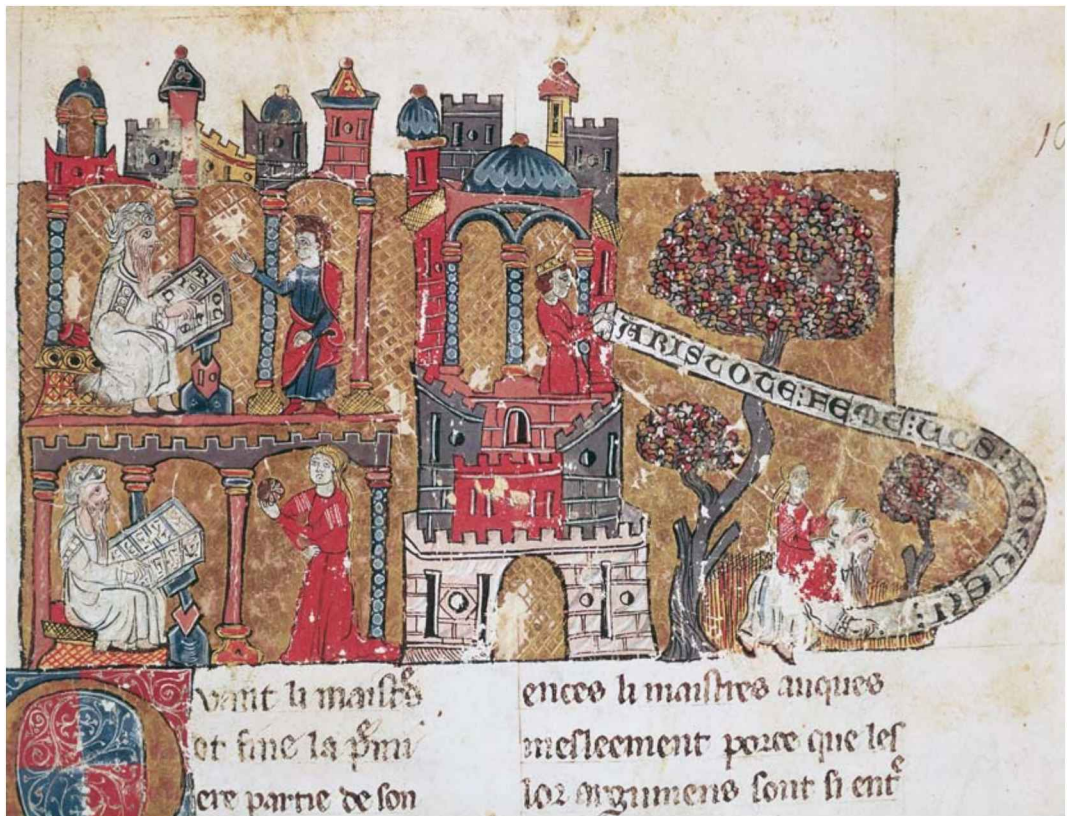 ARISTOTE:FEME:
Quant li maistr̃s
ot fine la p̃mi
ere partie de son
ences li maistres auques
mesleement porce que les
lor argumens sont si entr̃